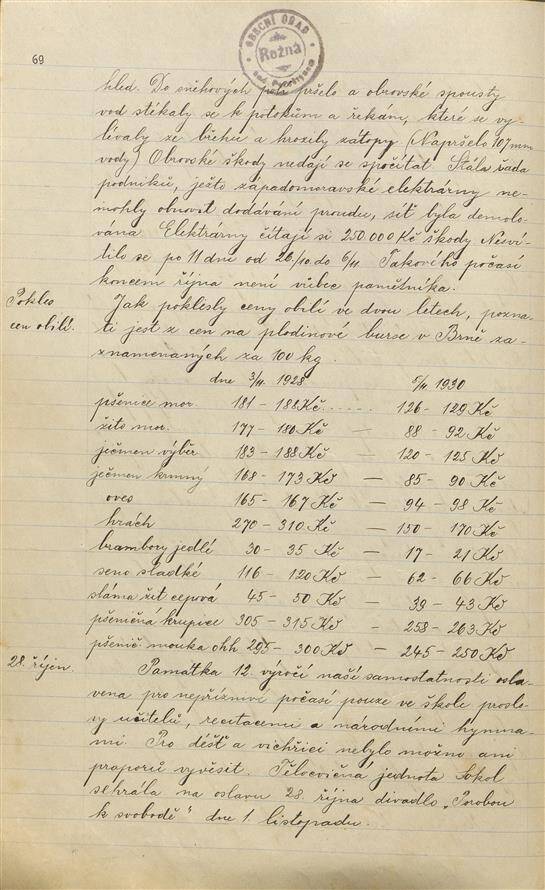 69
OBECNÍ ÚŘAD
Rožná
nad Pernštejnem
hled. Do sněhových pršelo a obrovské spousty
vod stékaly se k potokům a řekám, které se vy-
lévaly ze břehů a hrozily zátopy (Napršelo 107 mm
vody) Obrovské škody nedají se spočítat. Stála řada
podniků, ježto západomoravské elektrárny ne-
mohly obnovit dodávání proudu, síť byla demolo-
vána Elektrárny čítají si 250.000 Kč škody Nesví-
tilo se po 11 dní od 26/10. do 6/11. Takového počasí
koncem října není vůbec pamětníka.
Pokles
cen obilí.
Jak poklesly ceny obilí ve dvou letech, pozna-
ti jest z cen na plodinové burse v Brně za-
znamenaných za 100 kg.
dne 3/11. 1928 5/11. 1930
pšenice mor. 181 - 188 Kč..... 126 - 129 Kč
žito mor. 177 - 180 Kč — 88 - 92 Kč
ječmen výběr 183 - 188 Kč — 120 - 125 Kč
ječmen krmný 168 - 173 Kč — 85 - 90 Kč
oves 165 - 167 Kč — 94 - 98 Kč
hrách 270 - 310 Kč — 150 - 170 Kč
brambory jedlé 30 - 35 Kč — 17 - 21 Kč
seno sladké 116 - 120 Kč — 62 - 66 Kč
sláma žit cepová 45 - 50 Kč — 39 - 43 Kč
pšeničná krupice 305 - 315 Kč — 258 - 263 Kč
pšenič. mouka ohh 295 - 300 Kč — 245 - 250 Kč
28. říjen.
Památka 12. výročí naší samostatnosti osla-
vena pro nepříznivé počasí pouze ve škole proslo-
vy učitelů, recitacemi a národními hymna-
mi. Pro déšť a vichřici nebylo možno ani
praporů vyvěsit. Tělocvičná jednota Sokol
sehrála na oslavu 28. října divadlo „Porobou
k svobodě" dne 1. listopadu.